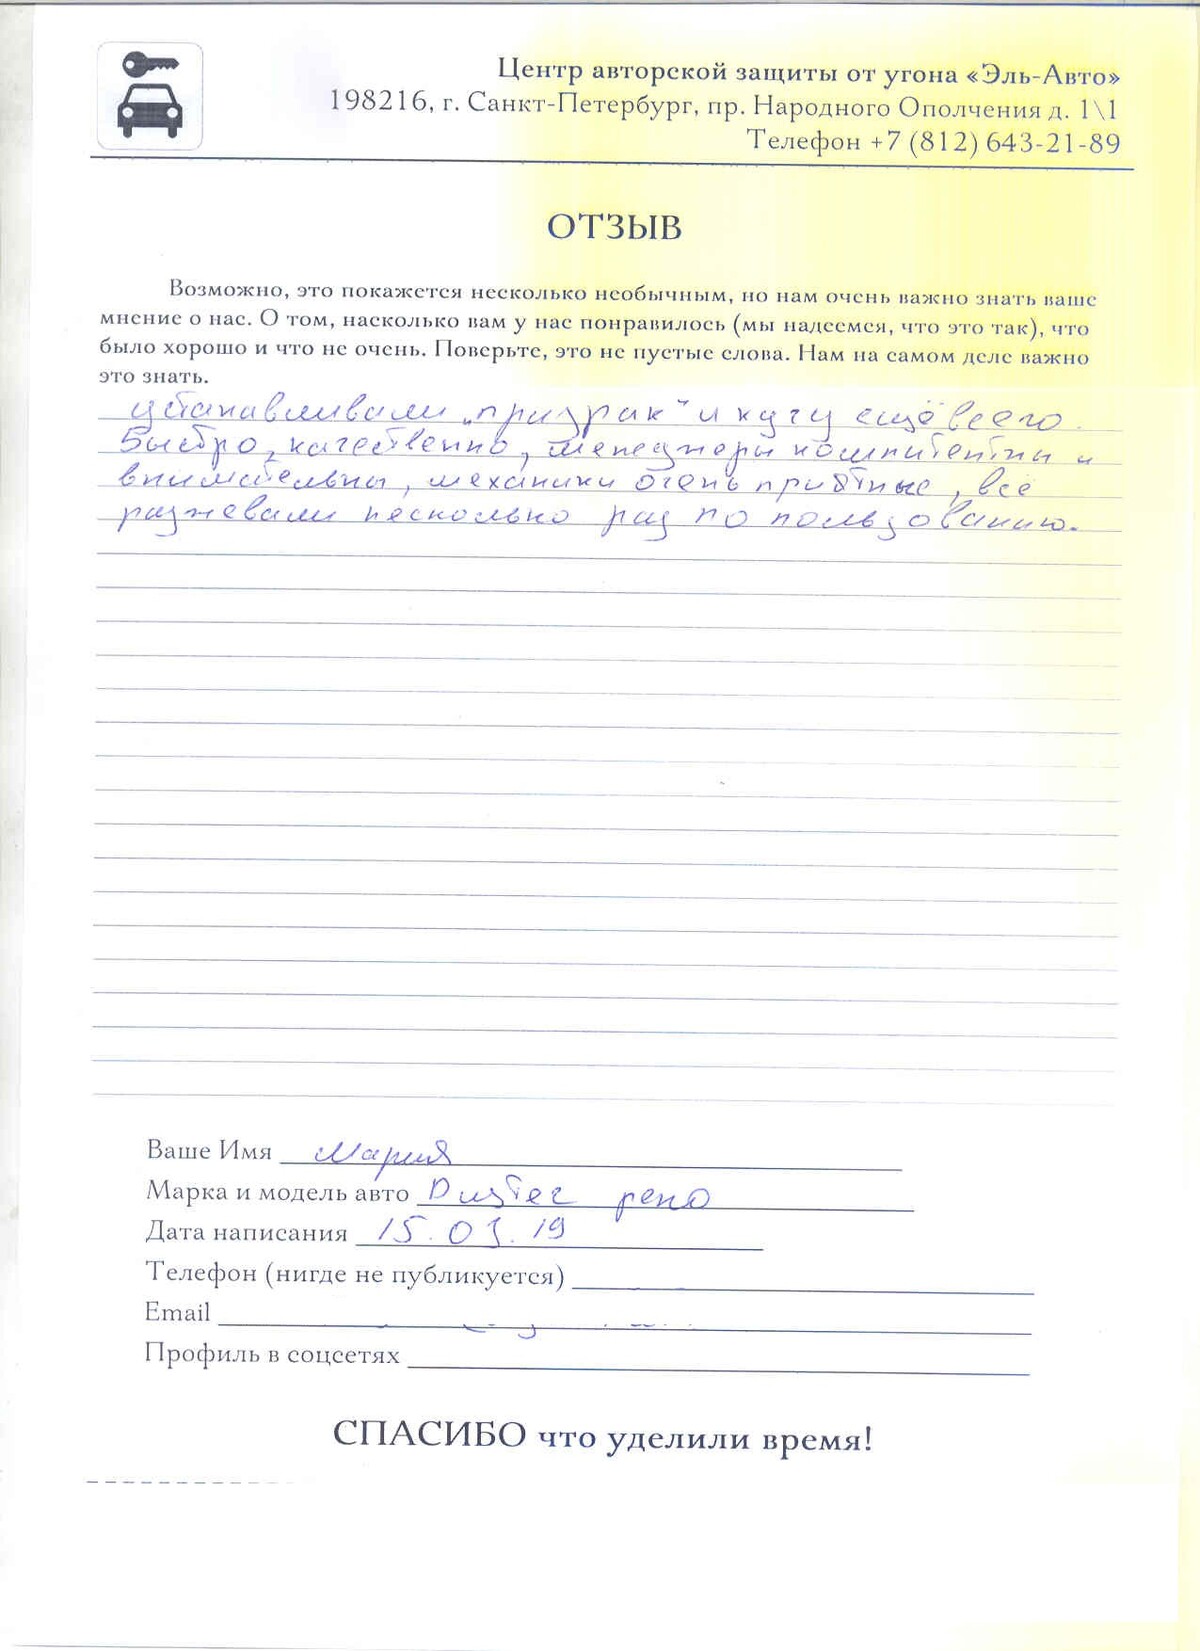 Центр авторской защиты от угона «Эль-Авто»
198216, г. Санкт-Петербург, пр. Народного Ополчения д. 1\1
Телефон +7 (812) 643-21-89
ОТЗЫВ
Возможно, это покажется несколько необычным, но нам очень важно знать ваше
мнение о нас. О том, насколько вам у нас понравилось (мы надеемся, что это так), что
было хорошо и что не очень. Поверьте, это не пустые слова. Нам на самом деле важно
это знать.
Устанавливали „призрак" и кучу ещё всего.
Быстро, качественно, менеджеры компитетны и
внимательны, механики очень приятные, всё
разжевали несколько раз по пользованию.
Ваше Имя Мария
Марка и модель авто Duster рено
Дата написания 15.03.19
Телефон (нигде не публикуется)
Email
Профиль в соцсетях
СПАСИБО что уделили время!